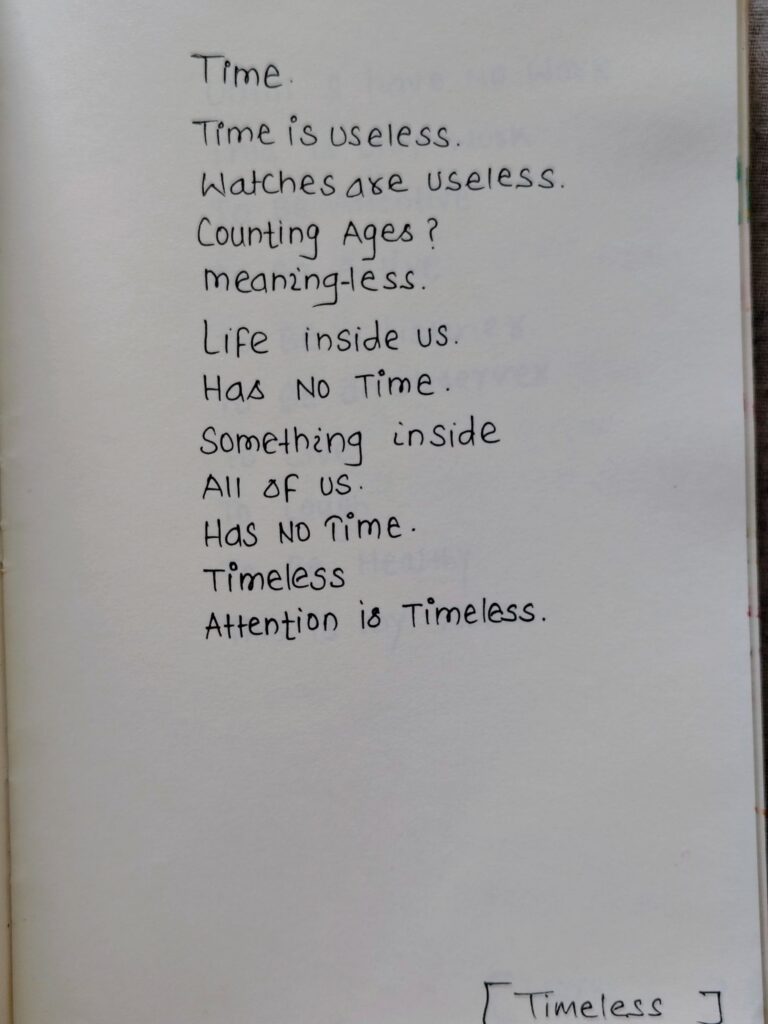 Time.
Time is useless.
Watches are useless.
Counting Ages?
meaning-less.
Life inside us.
Has No Time.
Something inside
All of us.
Has No Time.
Timeless
Attention is Timeless.
[Timeless]